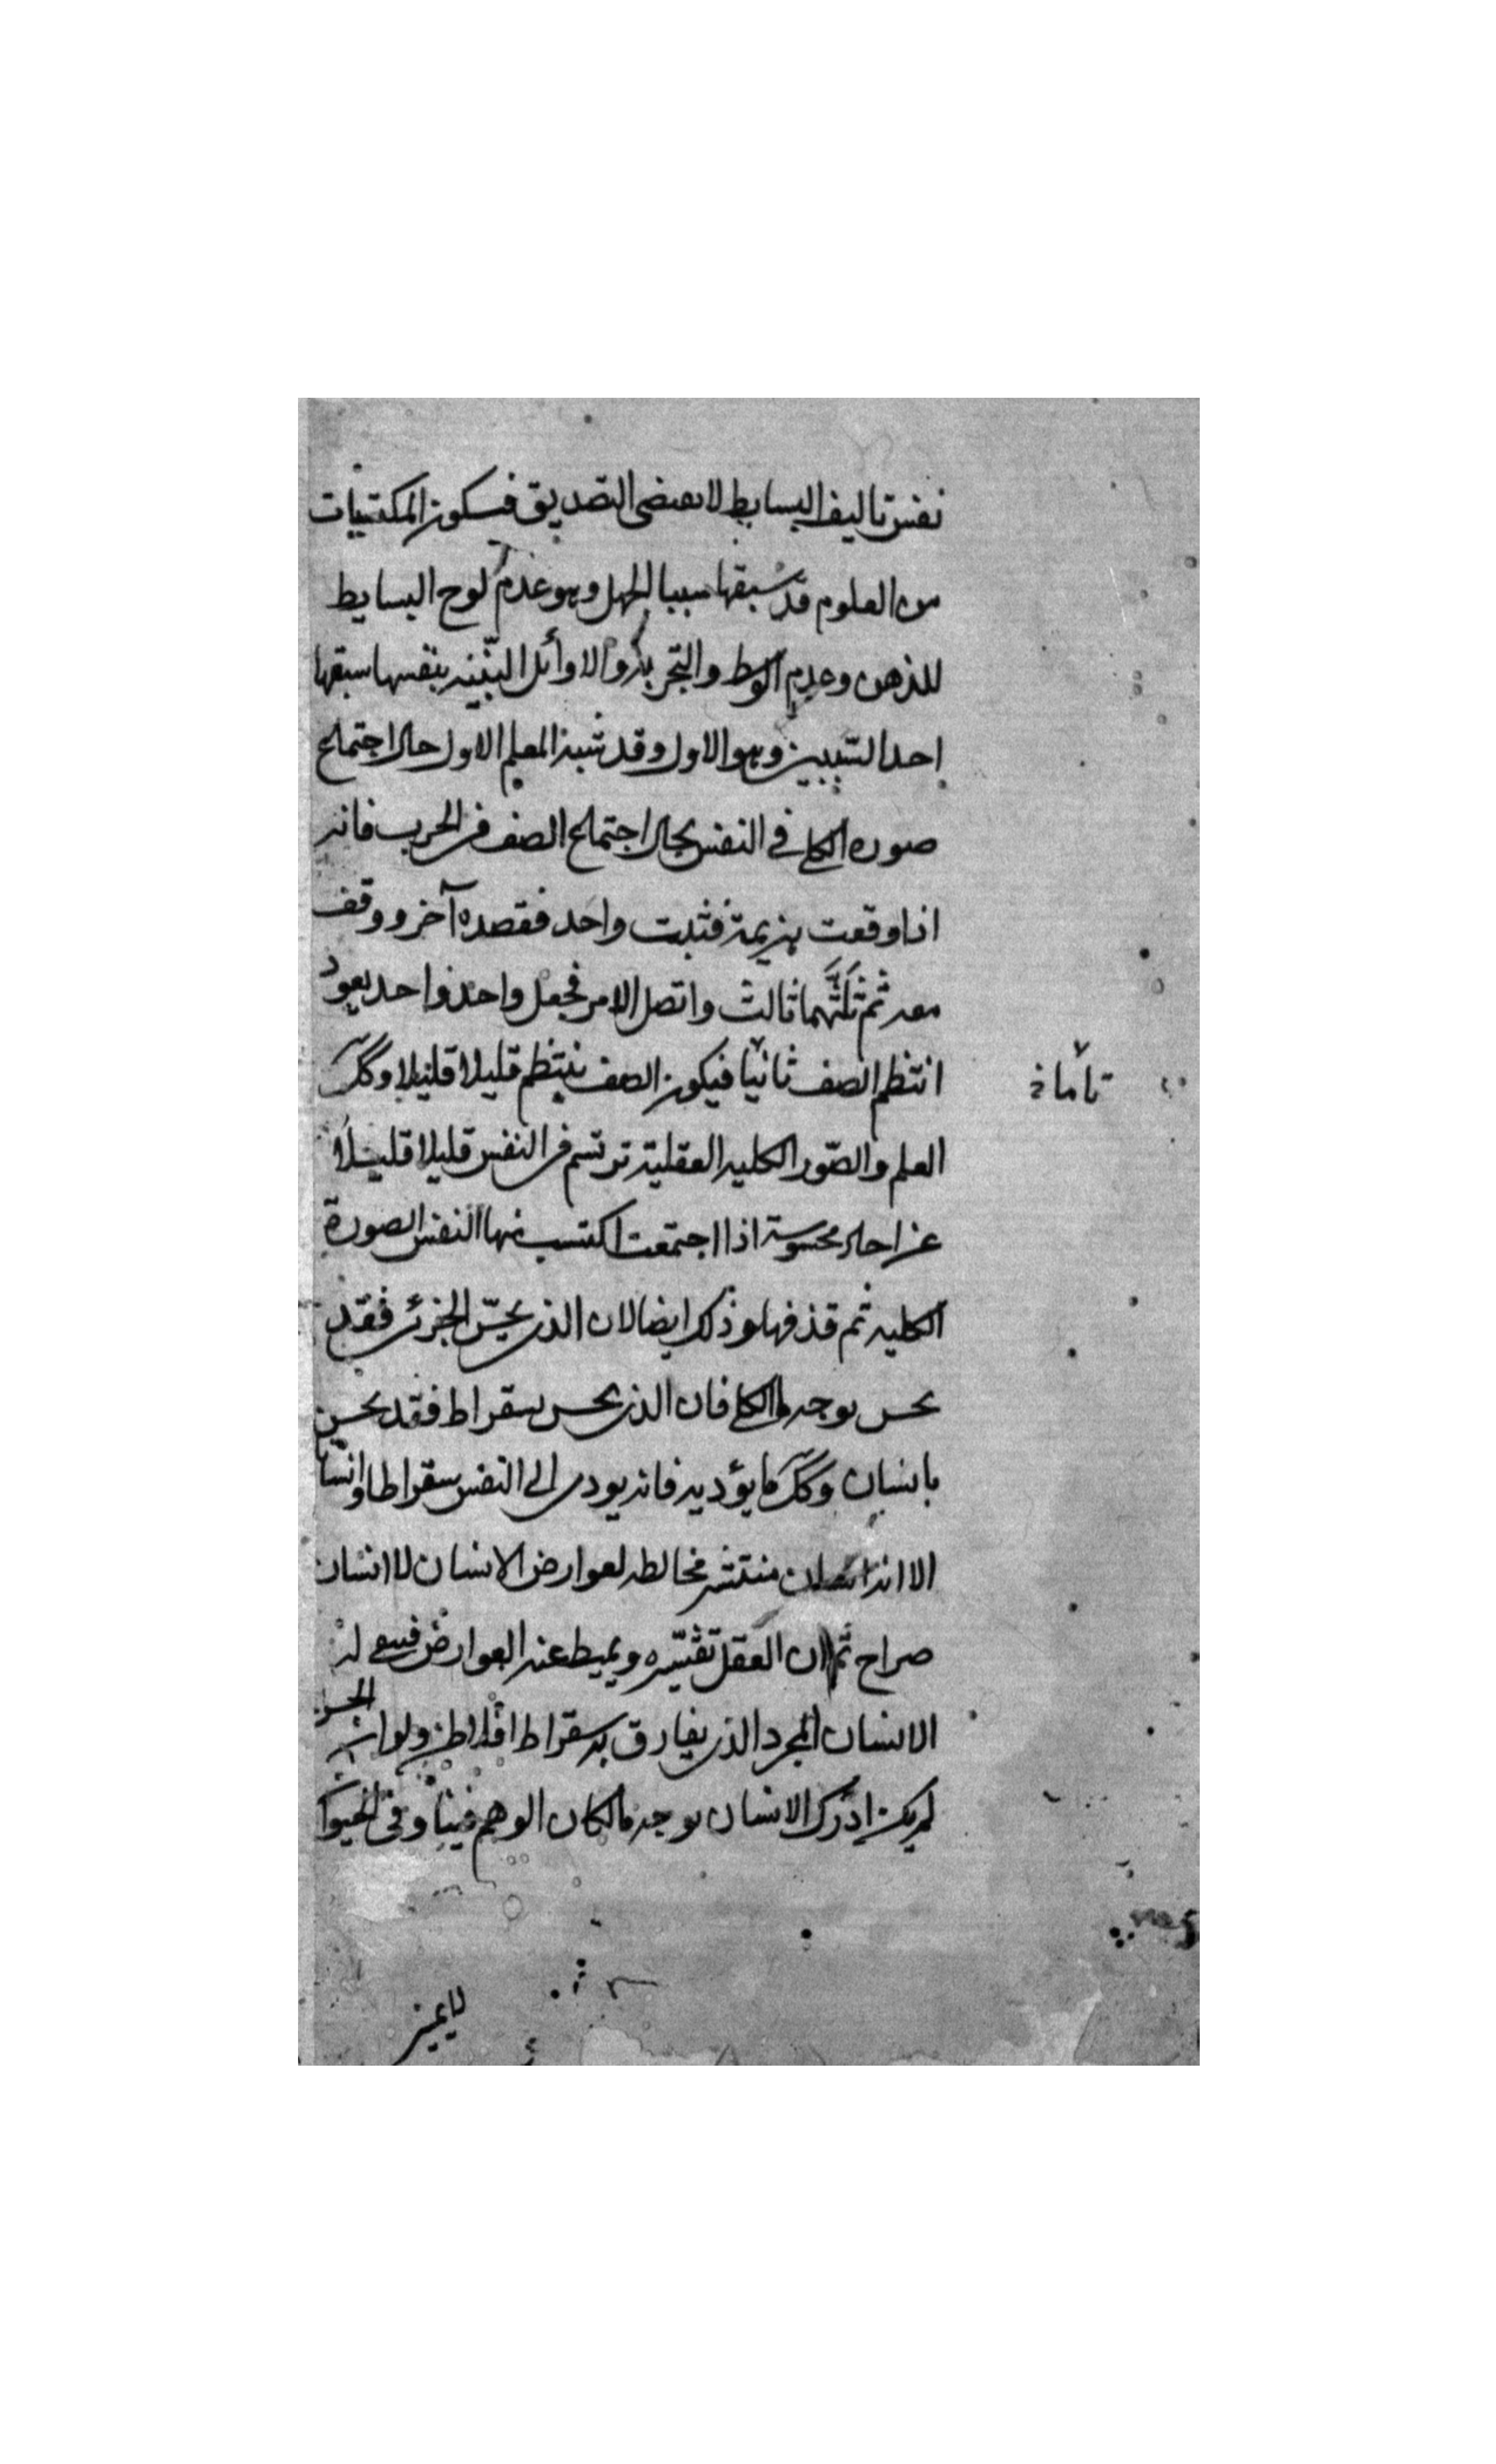 نفس تاليف البسايط لا يقتضى التصديق فيكون المكتسبات
من العلوم قد سبقها سببا الجهل وهو عدم لوح البسايط
للذهن وعدم الوسط والتجربة والاوائل البيّنة بنفسها سبقها
احد السّببين وهو الاول وقد شبه المعلم الاول حال اجتماع
صوره الكلي في النفس بحال اجتماع الصف في الحرب فانه
اذا وقعت هزيمة فثبت واحد فقصده آخر ووقف
معه ثم ثَلَّثَهما ثالث واتصل الامر فجعل واحد واحد يعود
انتظم الصف ثانيا فيكون الصف ينتظم قليلا قليلا وكك
تاما خ
العلم والصّور الكليه العقلية ترتسم في النفس قليلا قليلا
عن احاد محسوسة اذا اجتمعت اكتسب منها النفس الصورة
الكليه ثم قذفها وذلك ايضا لان الذي يحسّ الجزئي فقد
يحس بوجه ما الكلي فان الذي يحس بسقراط فقد يحس
بانسان وكك ما يؤديه فانه يودى الى النفس سقراطا وانسا
الا انه انسان منتشر مخالط لعوارض الانسان لا انسان
صراح ثم ان العقل تقشّره ويميط عنه العوارض فيبقى له
الانسان المجرد الذي يفارق به سقراط افلاطن ولو ان الحس
لم يكن ادرك الانسان بوجه ما لكان الوهم فينا وفي الحيوا
لا يميز